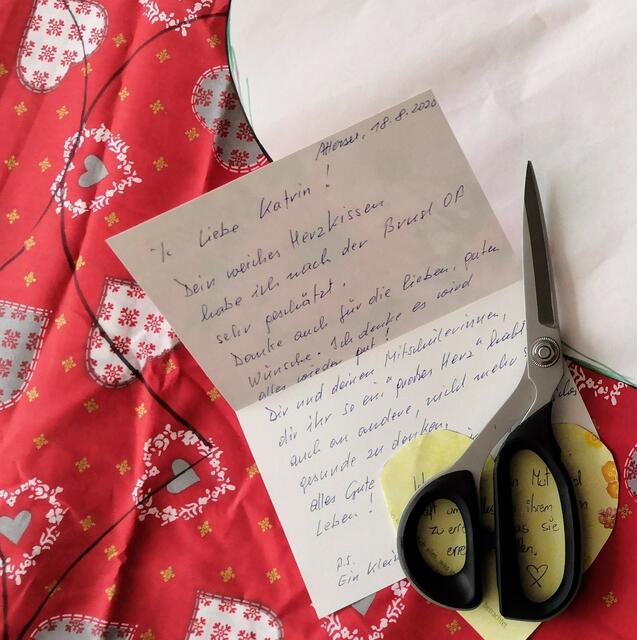 Attersee, 18.8.2020
Liebe Katrin!
Dein weiches Herzkissen
habe ich nach der Brust OP
sehr geschätzt.
Danke auch für die lieben, guten
Wünsche. Ich denke es wird
alles wieder gut!
Dir und deinen Mitschülerinnen,
die ihr so ein "großes Herz" habt
auch an andere, nicht mehr
gesunde zu denken,
alles Gute
Leben!
P.S.
Ein
Mut
ihrem
zu das sie